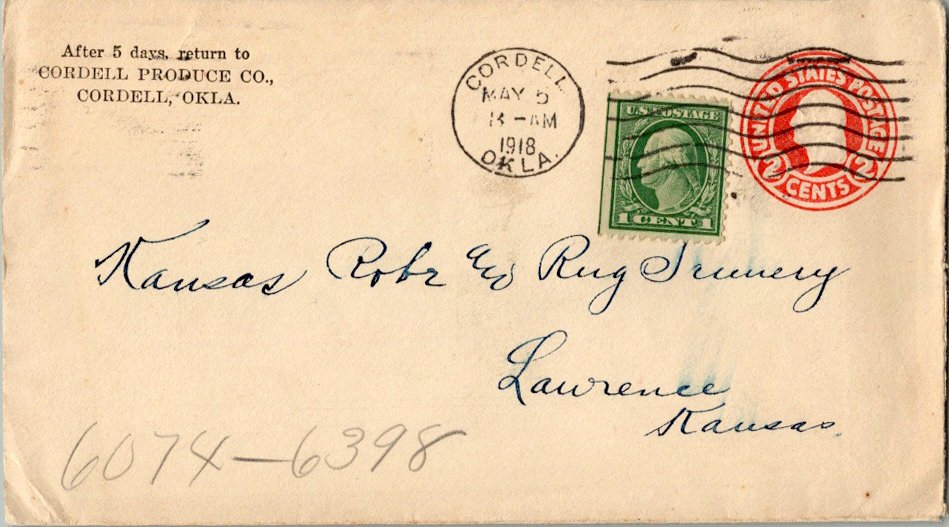 After 5 days, return to
CORDELL PRODUCE CO.,
CORDELL, OKLA.
CORDELL
MAY 5
-AM
1918
OKLA.
U.S. POSTAGE
1 CENT 1
UNITED STATES POSTAGE
2 CENTS 2
Kansas Robe & Rug
Lawrence
Kansas.
6074-6398